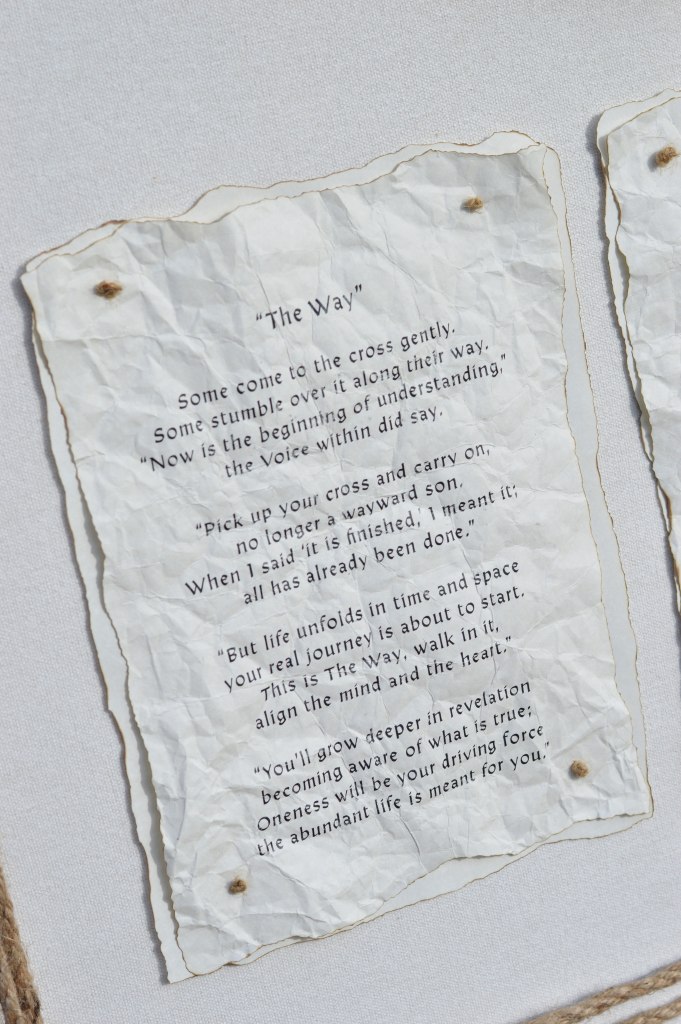 “The Way”
Some come to the cross gently.
Some stumble over it along their way.
“Now is the beginning of understanding,”
the Voice within did say.
“Pick up your cross and carry on,
no longer a wayward son.
When I said ‘it is finished,’ I meant it;
all has already been done.”
“But life unfolds in time and space
your real journey is about to start.
This is The Way, walk in it,
align the mind and the heart.”
“You'll grow deeper in revelation
becoming aware of what is true;
Oneness will be your driving force
the abundant life is meant for you.”